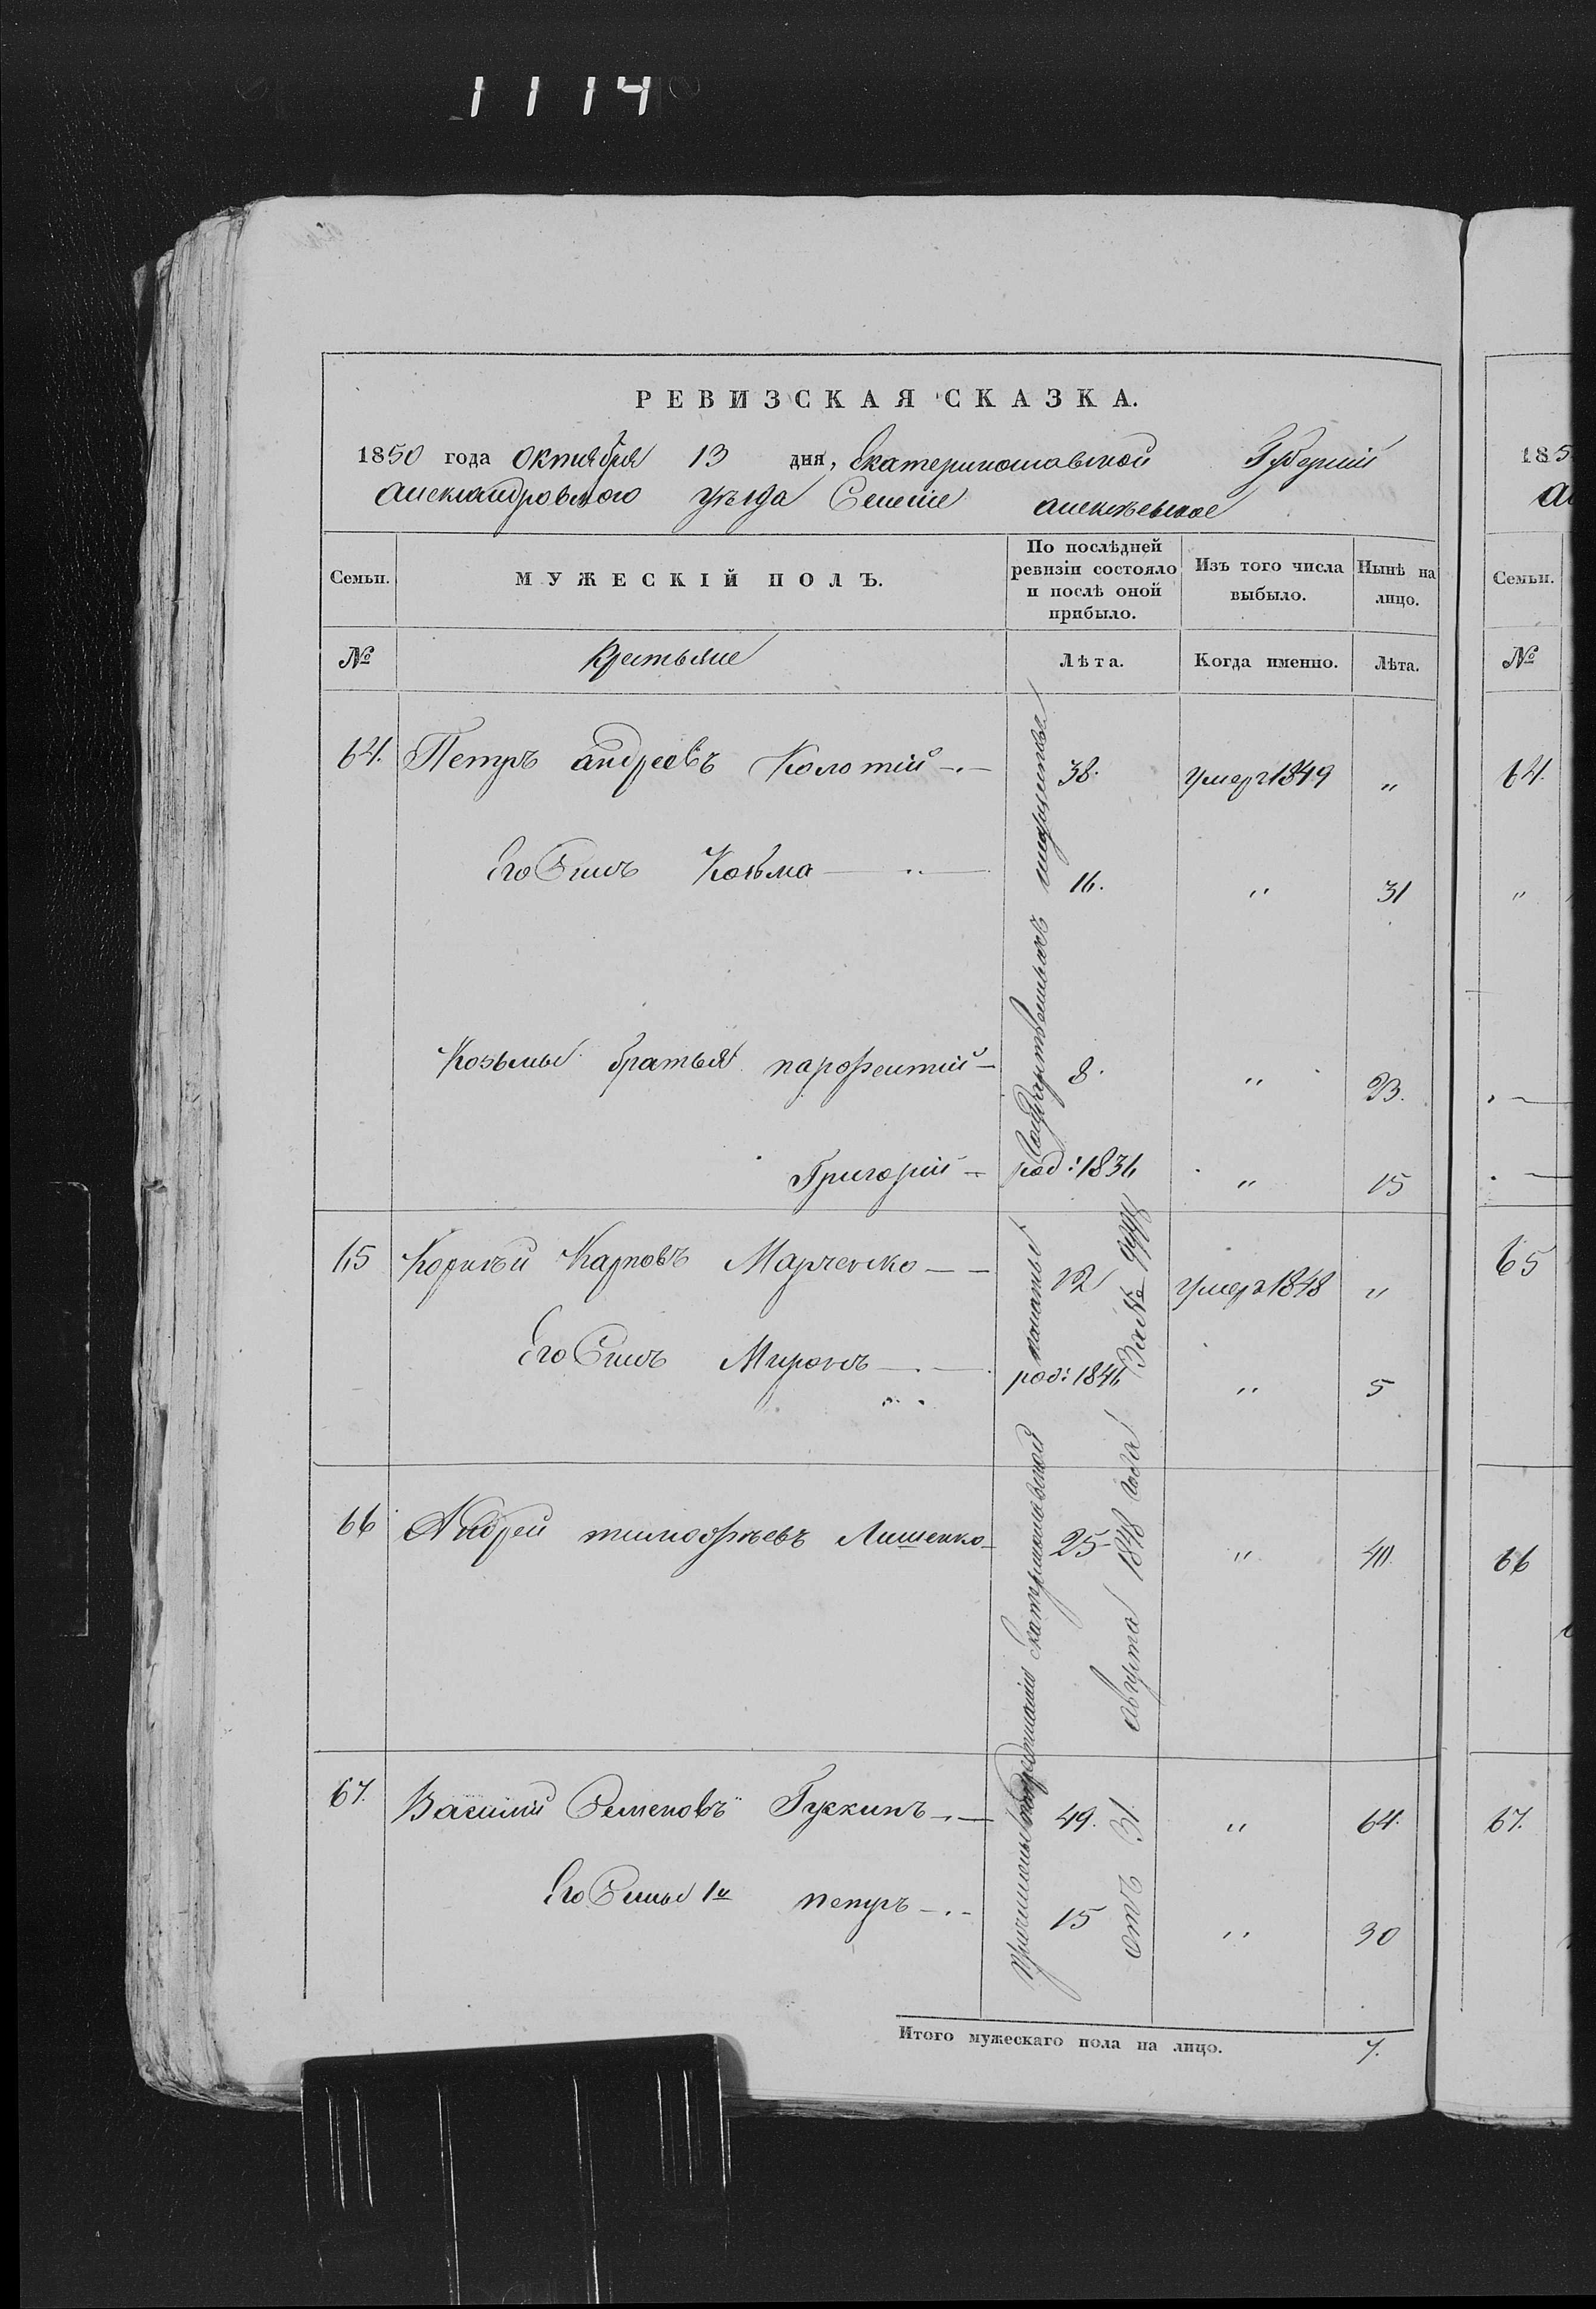 1114
РЕВИЗСКАЯ СКАЗКА.
1850 года Октября 13 дня, Екатеринославской Губерніи
Александровского уѣзда Селеніе Алексѣевское
Семьи. МУЖЕСКІЙ ПОЛЪ. По послѣдней ревизіи состояло и послѣ оной прибыло. Изъ того числа выбыло. Нынѣ на лицо.
№ Крестьяне Лѣта. Когда именно. Лѣта.
64. Петръ Андреевъ Колотій 38. умер 1849 "
Его Сынъ Козьма 16. " 31
Козьмы братья парфентій 8. " 23.
Григорій род: 1836 " 15
65 Корнѣй Карповъ Марченко 12 умер 1848 "
Его Сынъ Миронъ род: 1846 " 5
66 Андрей тимофѣевъ Лишенко 25 " 40.
67. Василий Семеновъ Гускинъ 49. " 64.
Его Сыны 1й петръ 15 " 30
Причислены по Екатеринославской
палаты Государственныхъ имуществъ
отъ 31. августа 1848 года За №
Итого мужескаго пола на лицо. 7.
185
Семьи.
№
64.
"
65
66
67.